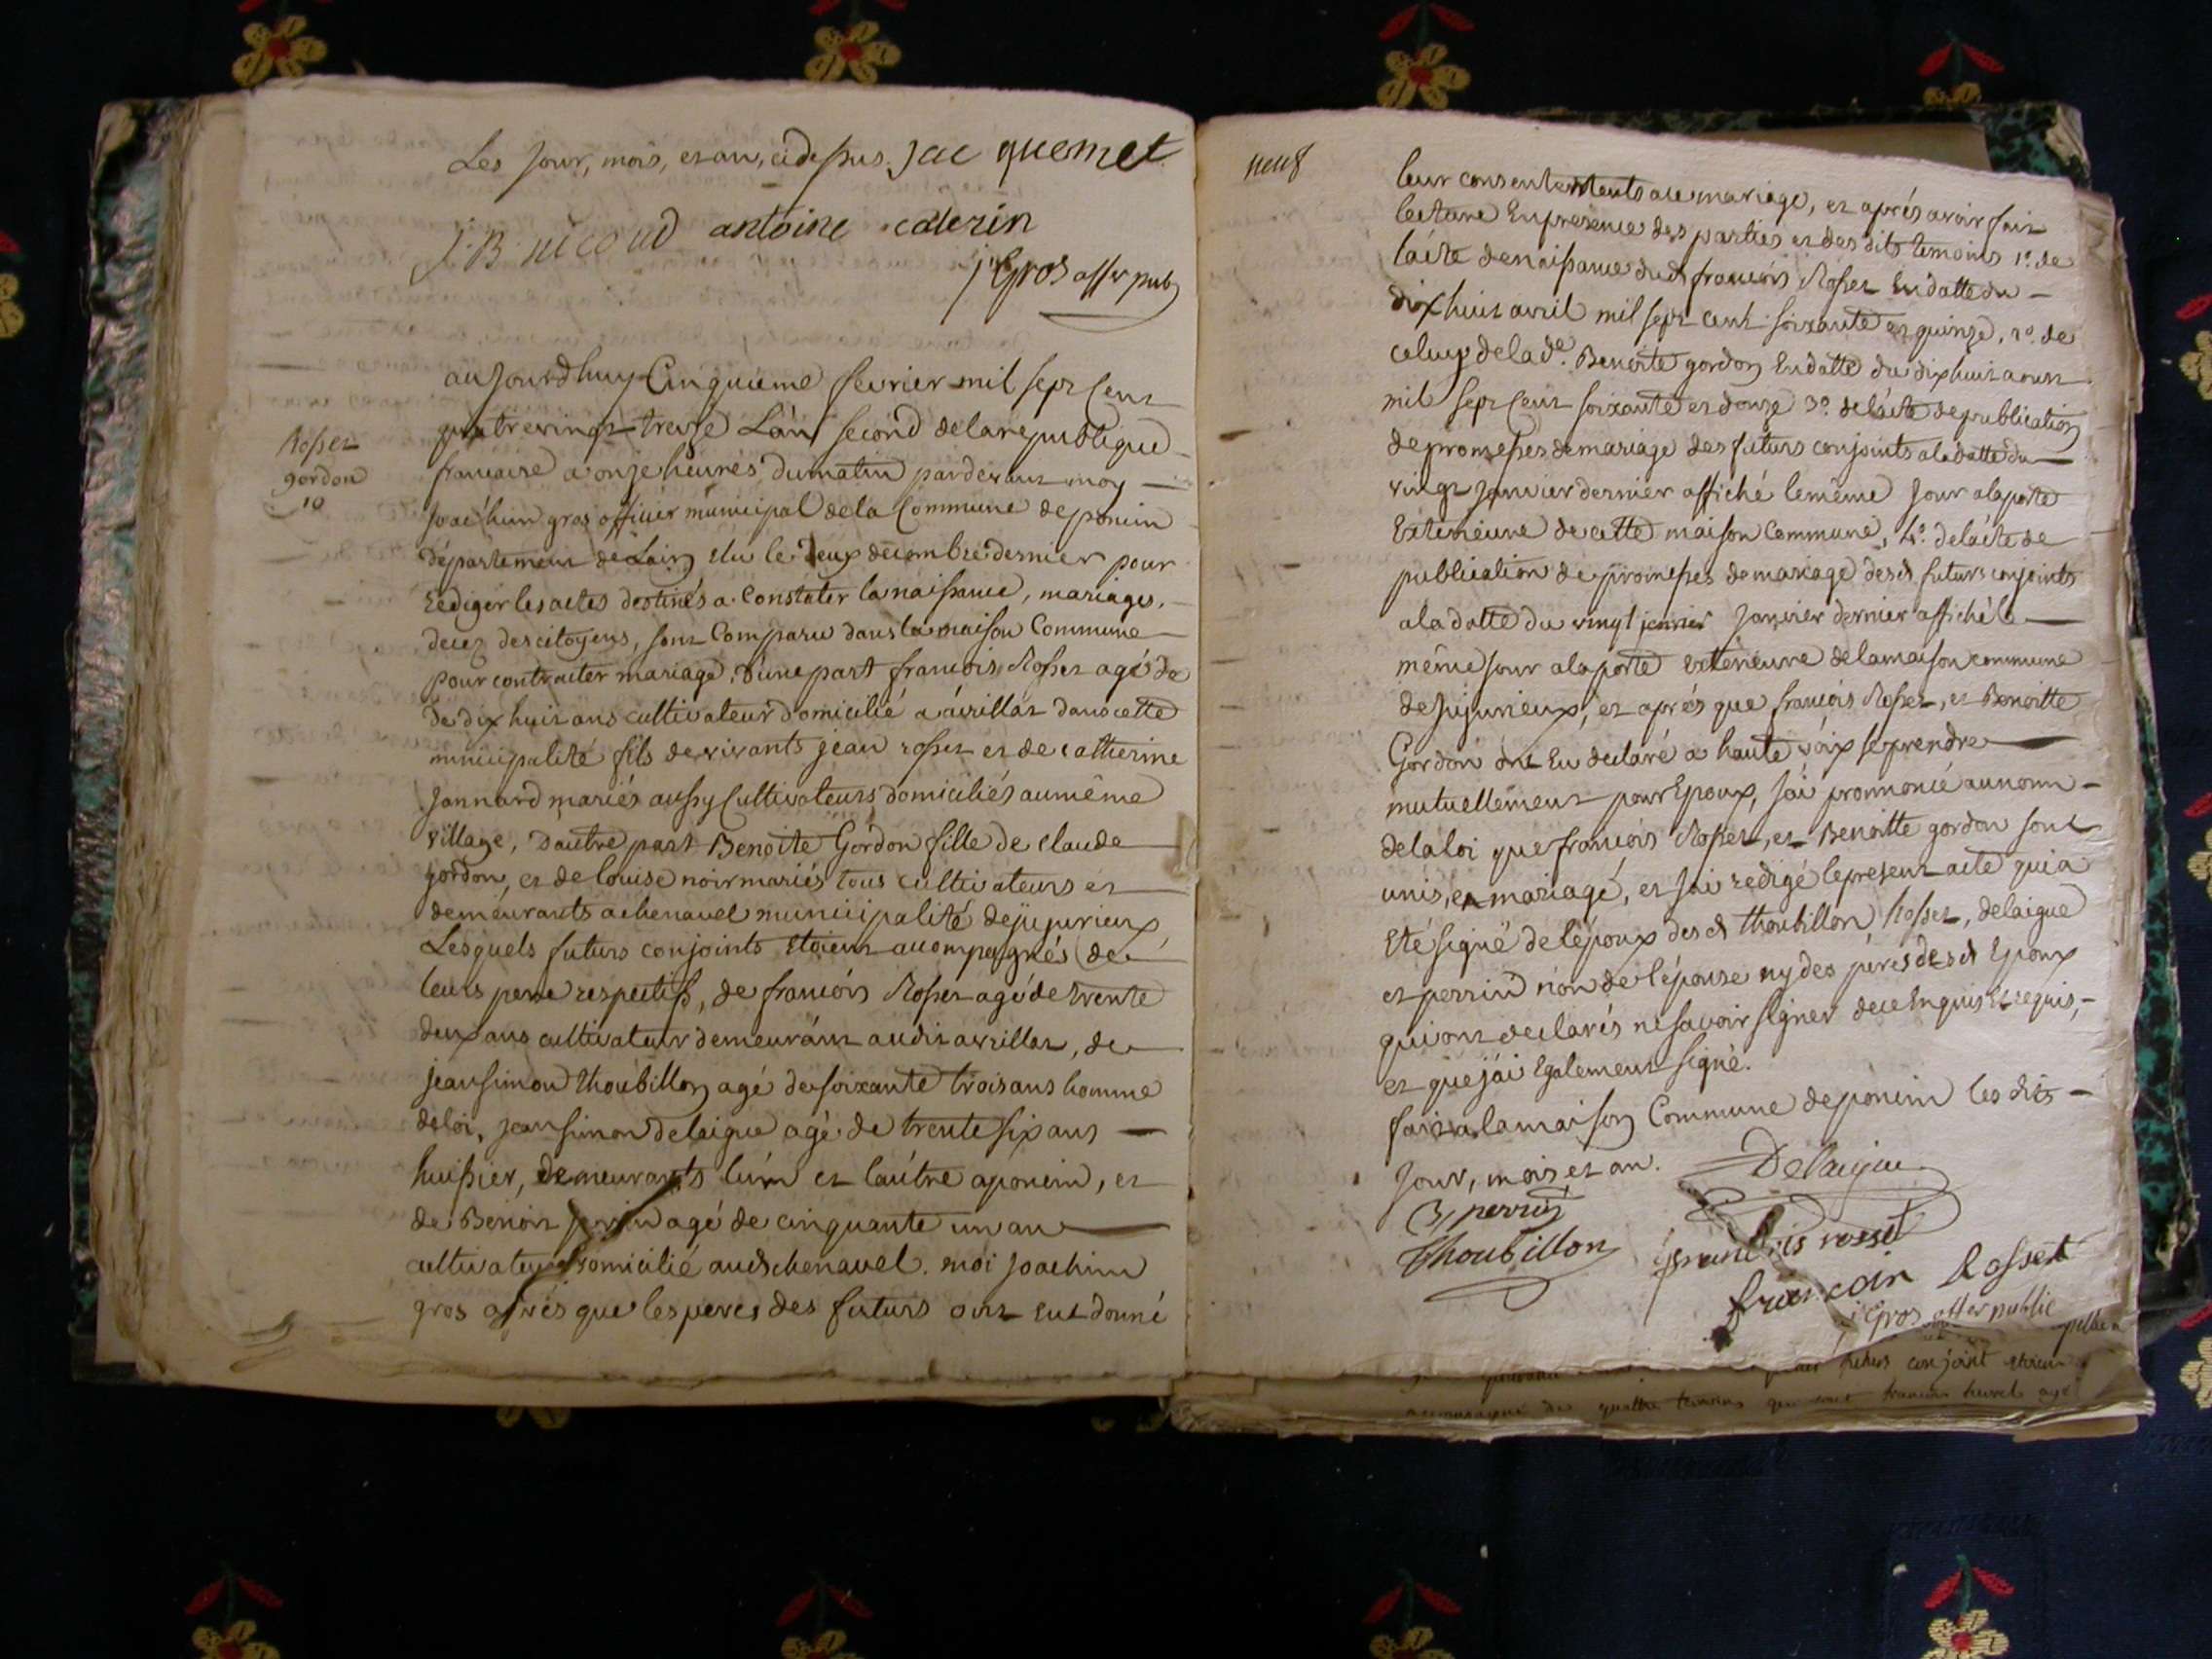 Les Jour, mois, et an, cidessus. Jac quemet
J. B. nicoud antoine caterin
j Gros offer pub
aujourdhuy Cinquieme fevrier mil sept Cent
quatrevingt treize L'an second delarepublique
francaise a onze heures dumatin pardevant moy
Rosset
gordon
10
Joachim gros officier municipal dela Commune deponcin
département de Lain elu le Deux décembre dernier pour
rediger les actes destinés a Constater la naissance, mariages,
decez des citoyens, sont Comparu dans la maison Commune
pour contracter mariage, d'une part francois Rosset agé de
de dix huit ans cultivateur domicilié a avrillat dans cette
municipalité fils de vivants jean rosset et de catherine
Jannard mariés aussy Cultivateurs domiciliés aumême
village, Dautre part Benoite Gordon fille de claude
gordon, et de louise noir mariés tous cultivateurs et
demeurants achenavel municipalité dejujurieux
Lesquels futurs conjoints etoient accompagnés de
leurs pere respectifs, de francois Rosset agé de trente
deux ans cultivateur demeurant audit avrillat, de
jean simon thoubillon agé de soixante trois ans homme
deloi, jean simon delaigue agé de trente six ans
huissier, demeurants l'un et lautre aponcin, et
de Benoit perrin agé de cinquante un an
cultivateur domicilié aud chenavel. moi joachim
gros après que les peres des futurs ont eut donné
neuf
leur consentements au mariage, et après avoir fait
lecture En presence des parties et des dits temoins 1º. de
lacte denaissance dud francois Rosset En datte du
dix huit avril mil sept cent soixante et quinze, 2º. de
celuy delade. Benoite gordon En datte du dix huit aoust
mil sept Cent soixante et douze 3º. delacte depublication
de promesses demariage des futurs conjoints aladatte du
vingt Janvier dernier affiché lemême Jour alaporte
Exterieure decette maison Commune, 4º. delacte de
publication de promesses demariage desd. futurs conjoints
aladatte du vingt janvier Janvier dernier affiché le
même Jour alaporte exterieure delamaison commune
deJujurieux, et aprés que francois Rosset, et Benoitte
Gordon ont Eu declaré a haute voix se prendre
mutuellement pour Epoux, j'ai prononcé aunom
delaloi que francois Rosset, et Benoitte gordon sont
unis en mariage, et j'ai redigé lepresent acte qui a
Eté signé de lépoux desd. thoubillon Rosset, delaigue
et perrin non de lépouse ny des péres desd Epoux
qui ont declarés ne savoir signer dece Enquis et requis,
et que j'ai Egalement signé.
fait a lamaison Commune deponcin les dits
Jour, mois et an. Delaigue
B, perrin
Thoubillon francois rosset
francoin Rosset
j Gros offer public
futurs conjoint etoient
accompagné de quattre temoins qui sont francois